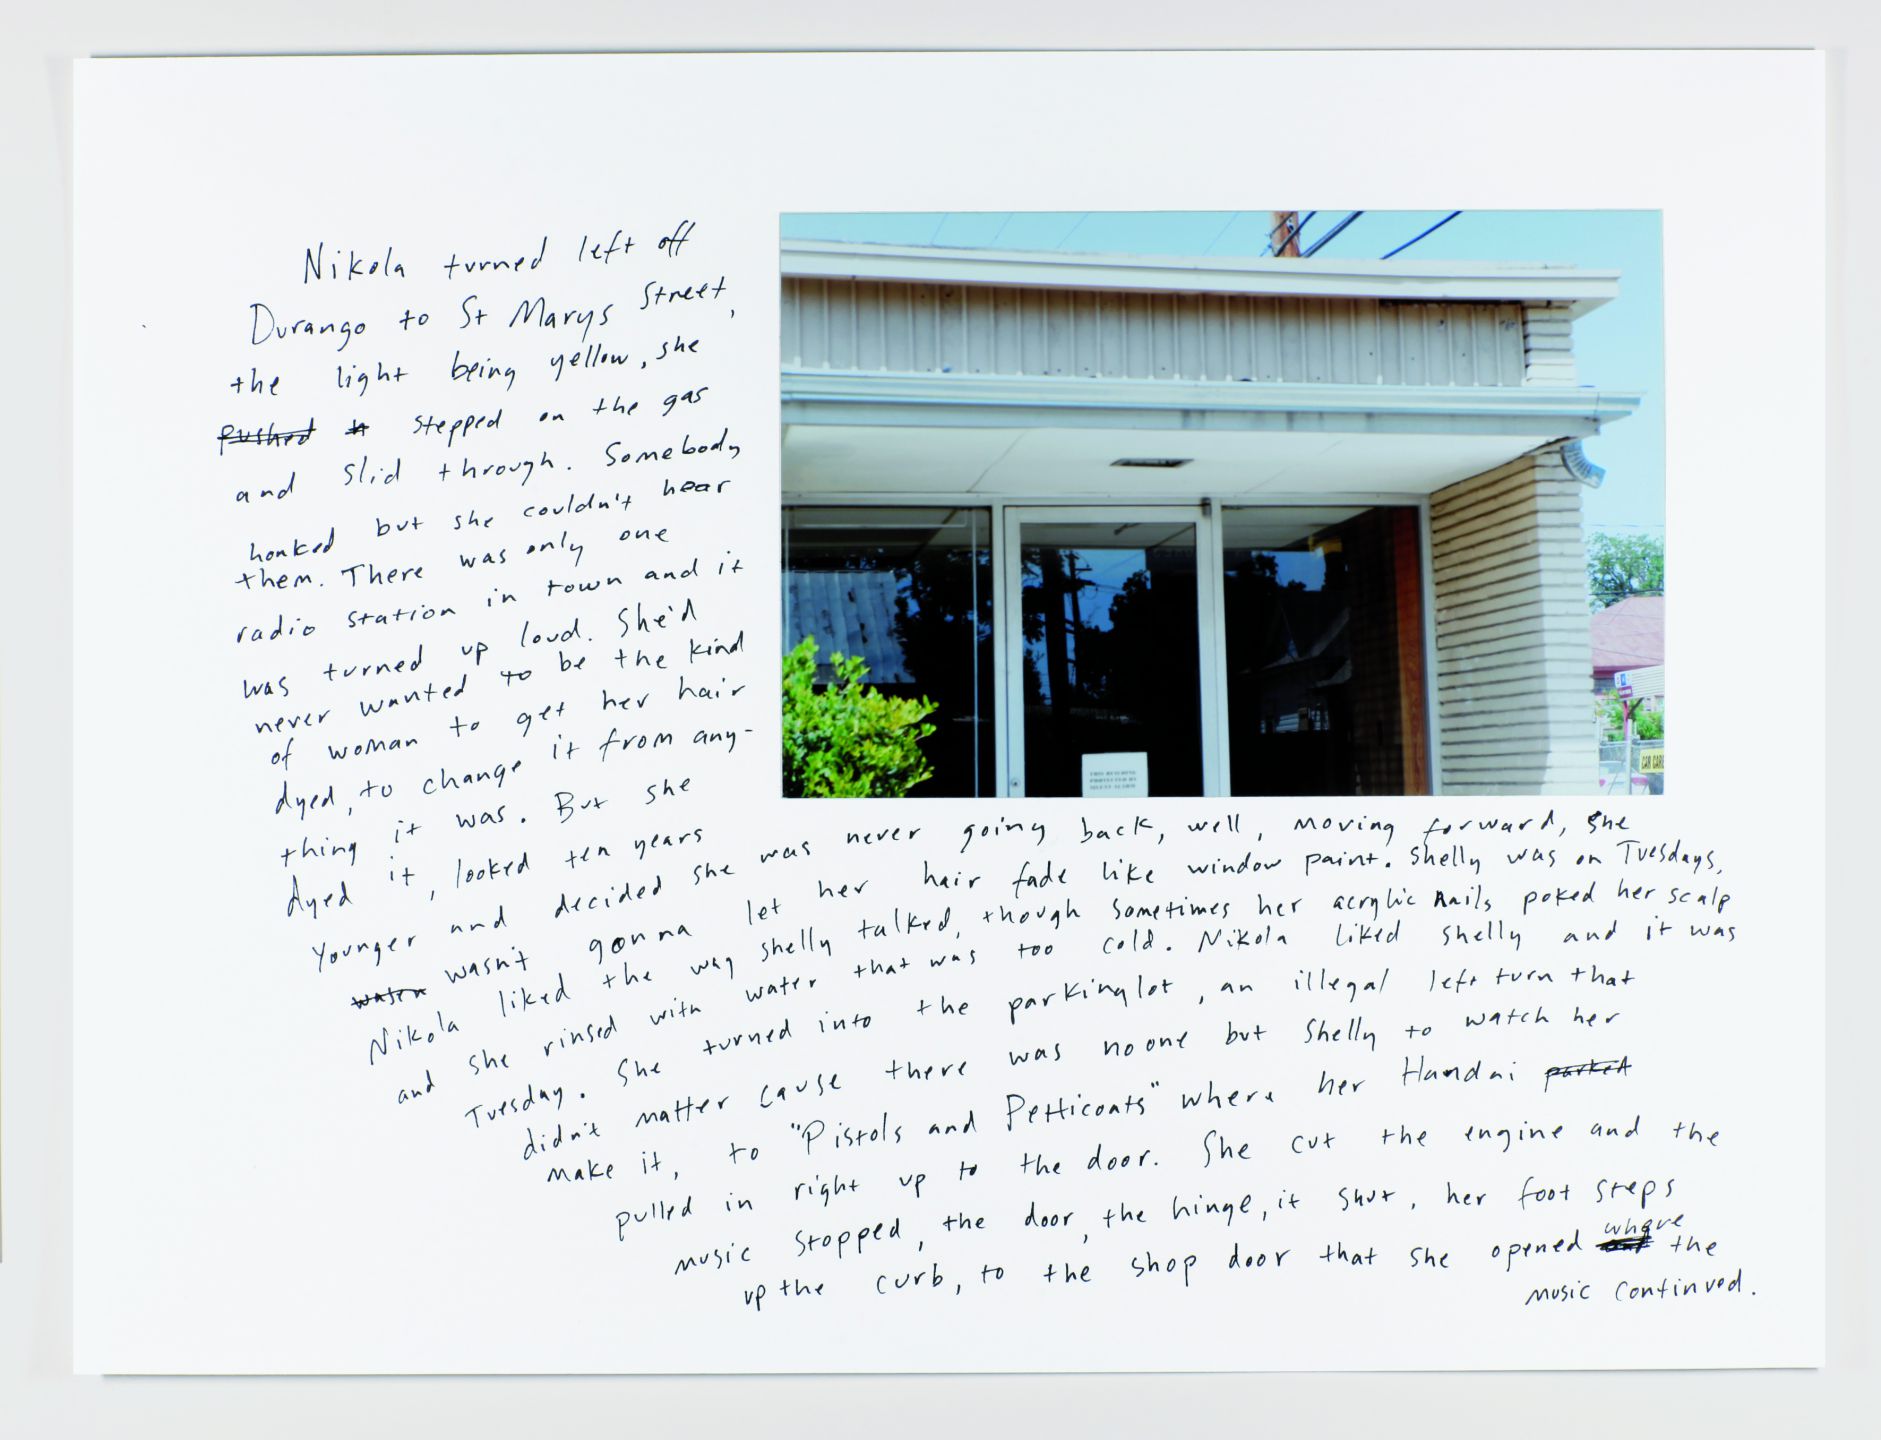 Nikola turned left off
Durango to St Marys Street,
the light being yellow, she
pushed stepped on the gas
and slid through. Somebody
honked but she couldn't hear
them. There was only one
radio station in town and it
was turned up loud. She'd
never wanted to be the kind
of woman to get her hair
dyed, to change it from any-
thing it was. But she
dyed it, looked ten years
younger and decided she was never going back, well, moving forward, she
wasn't gonna let her hair fade like window paint. Shelly was on Tuesdays,
Nikola liked the way Shelly talked, though sometimes her acrylic nails poked her scalp
and she rinsed with water that was too cold. Nikola liked Shelly and it was
Tuesday. She turned into the parkinglot, an illegal left turn that
didn't matter cause there was no one but Shelly to watch her
make it, to "Pistols and Petticoats" where her Hundai parked
pulled in right up to the door. She cut the engine and the
music stopped, the door, the hinge, it shut, her foot steps
up the curb, to the shop door that she opened where the
music continued.
THIS BUILDING
PROTECTED BY
SILENT ALARM
CAR CARE